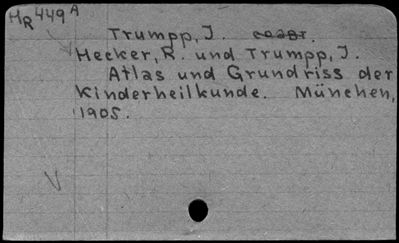 HR 449 A
Trumpp, J.
Hecker, R. und Trumpp, J.
Atlas und Grundriss der
Kinderheilkunde. München,
1905.